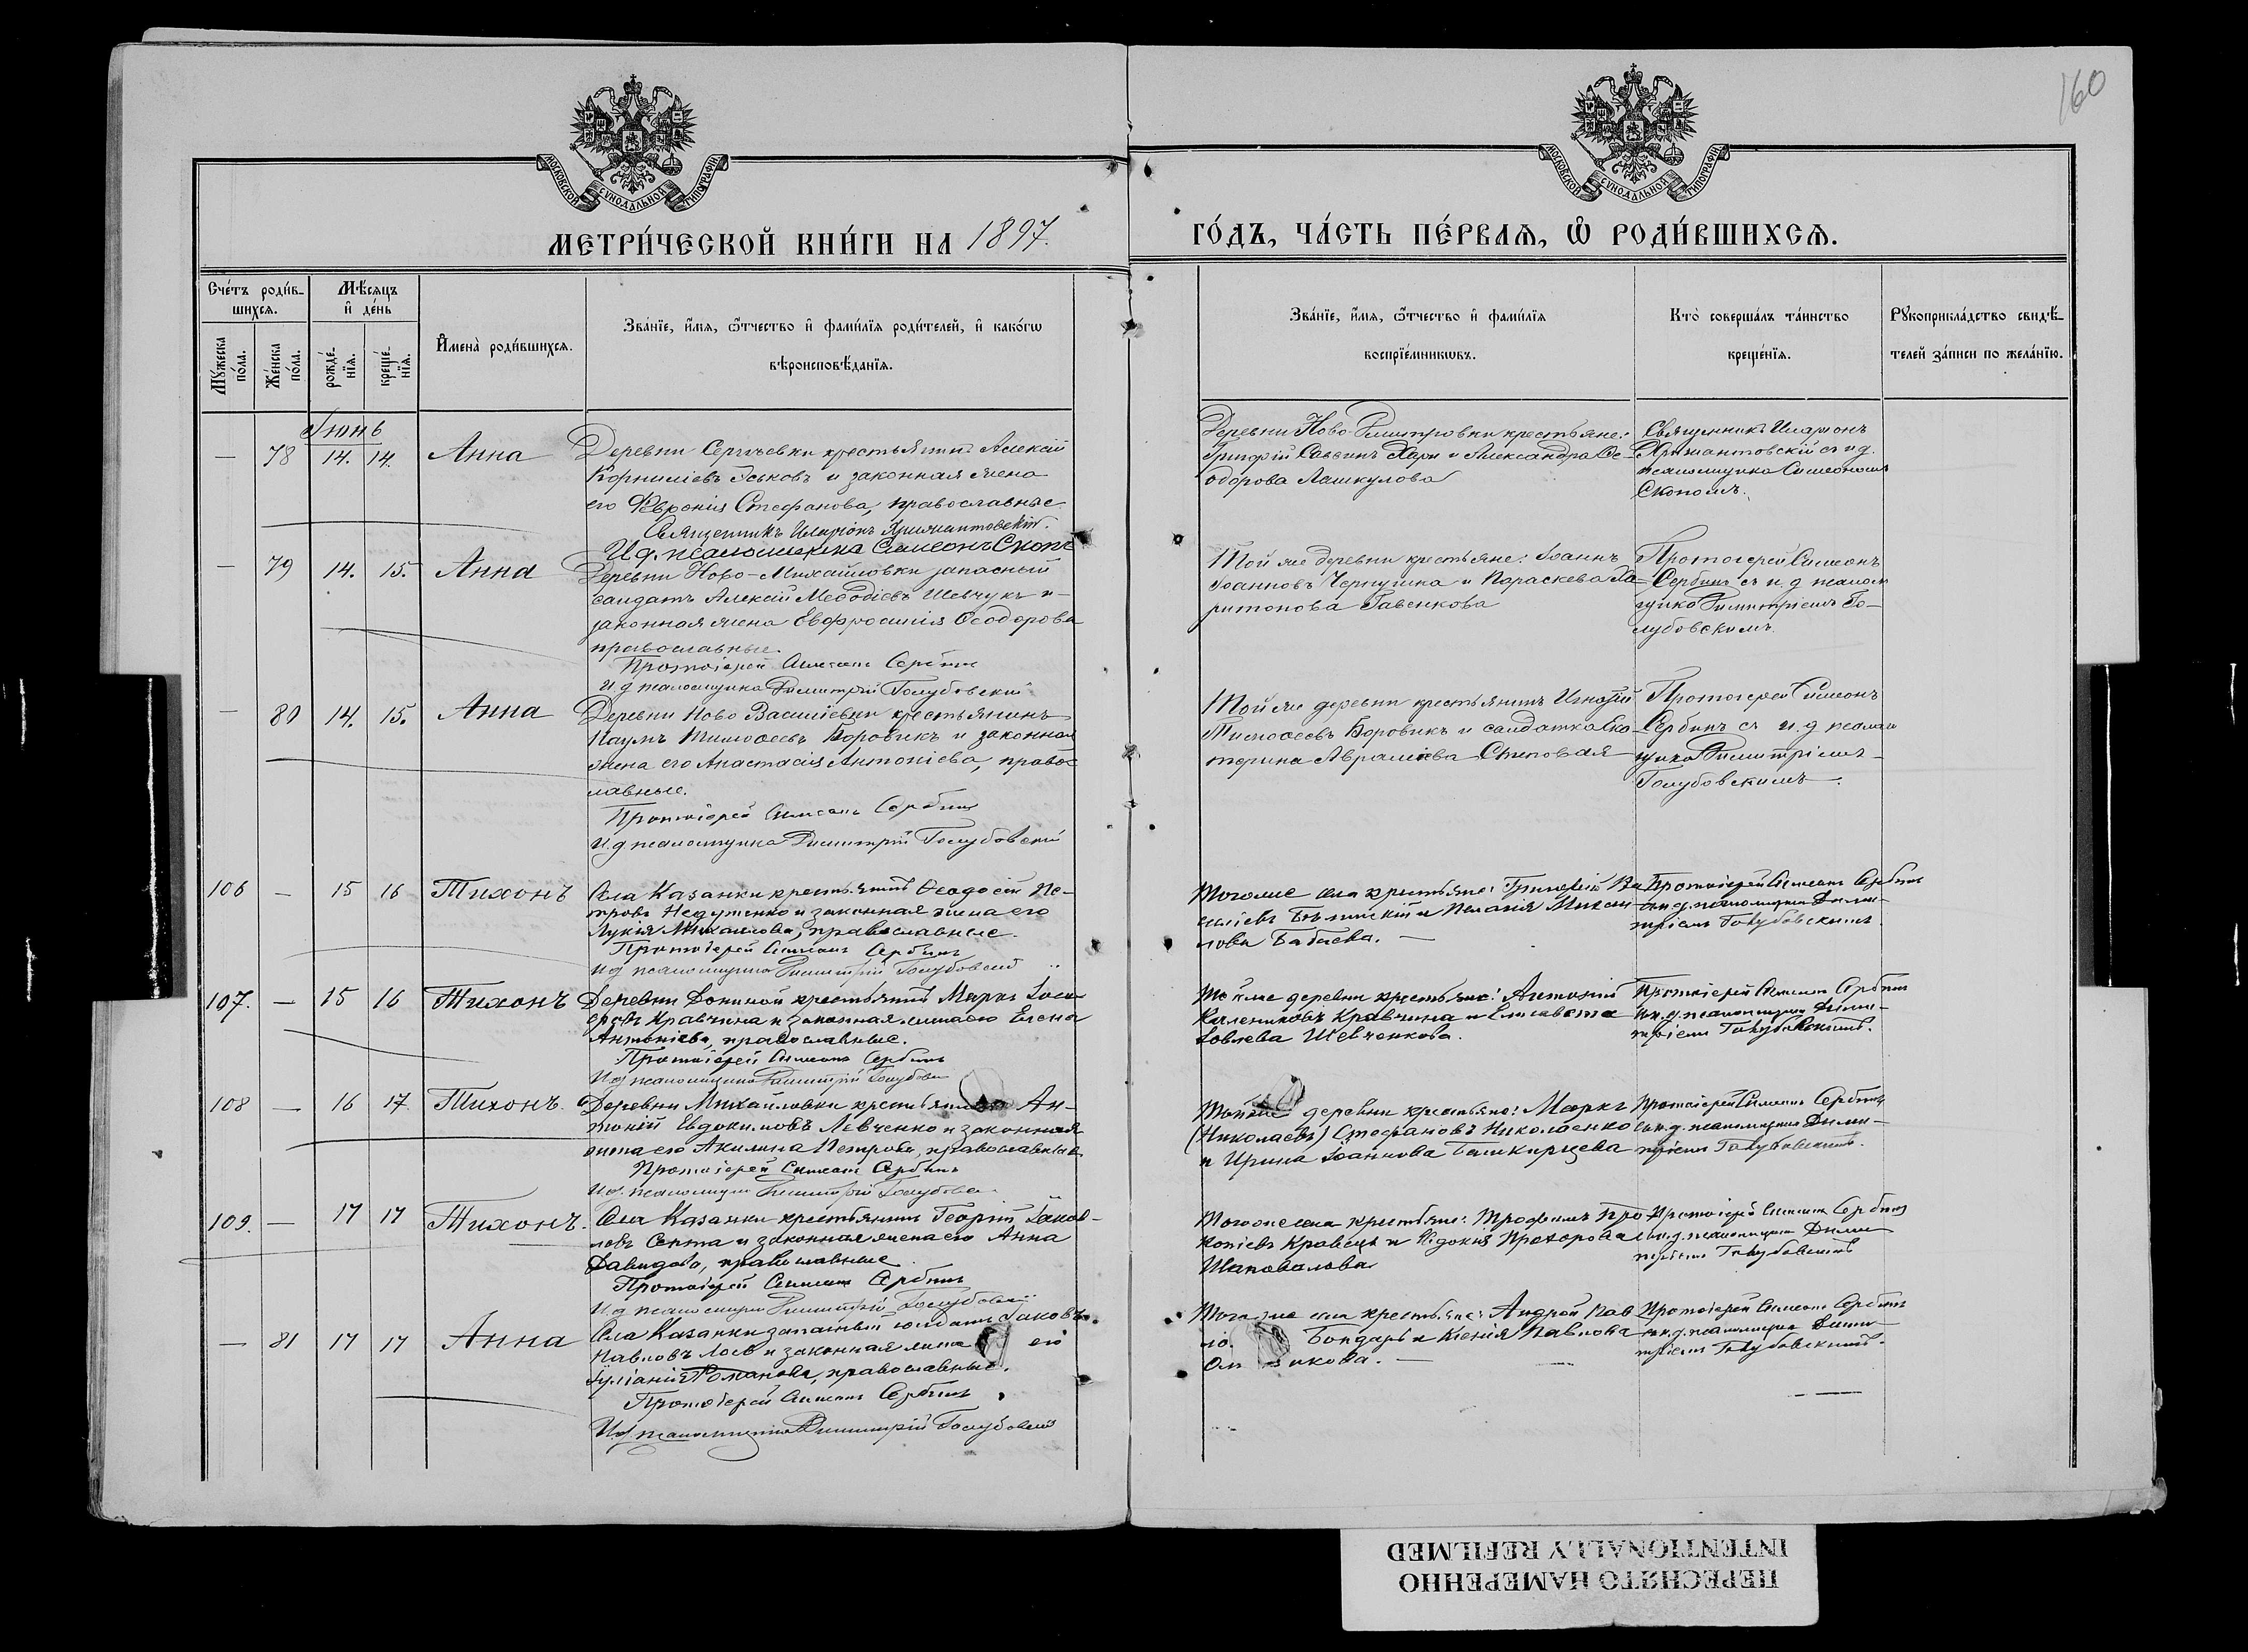 160
МОСКОВСКОЙ СУНОДАЛЬНОЙ ТИПОГРАФІИ
МОСКОВСКОЙ СУНОДАЛЬНОЙ ТИПОГРАФІИ
МЕТРИ́ЧЕСКОЙ КНИ́ГИ НА 1897.
ГО́ДЪ, ЧА́СТЬ ПЕ́РВАѦ, Ѡ РОДИ́ВШИХСѦ.
Сче́тъ роди́в-
шихсѧ.
Мꙋ́жеска по́ла.
Же́нска по́ла.
Мѣ́сѧцъ
и҆ де́нь
рожде́-
нїѧ.
креще́-
нїѧ.
И҆мена̀ роди́вшихсѧ.
Зва́нїе, и҆́мѧ, ѻ҆́тчество и҆ фами́лїѧ роди́телей, и҆ како́гѡ
вѣроисповѣ́данїѧ.
Зва́нїе, и҆́мѧ, ѻ҆́тчество и҆ фами́лїѧ
воспрїе́мникѡвъ.
Кто̀ соверша́лъ та́инство
креще́нїѧ.
Рꙋкоприкла́дство свидѣ́-
телей за́писи по жела́нїю.
Іюнь
— 78 14. 14. Анна
Деревни Сергѣевки крестьянинъ Алексій
Корниліевъ Гоьковъ и законная жена
его Февронія Стефанова, православные
Священникъ Иларіонъ
И. д. псаломщика Симеонъ Скопъ
Деревни Ново Димитровки крестьяне:
Григорій Саввинъ Хари и Александра Ѳе-
одорова Лашкулова
Священникъ Иларіонъ
съ и д.
псаломщика Симеономъ
Скопомъ.
— 79 14. 15. Анна
Деревни Ново-Михайловки запасный
солдатъ Алексій Меѳодіевъ Шевчукъ и
законная жена Евфросинія Ѳеодорова
православные.
Протоіерей Симеонъ Сербинъ
И. д псаломщика Димитрій Голубовскій
Той же деревни крестьяне: Іоаннъ
Іоанновъ и Параскева Ха-
ритонова Гавенкова
Протоіерей Симеонъ
Сербинъ съ и. д псалом
щика Димитріемъ Го-
лубовскимъ.
— 80 14. 15. Анна
Деревни Ново Василіевки крестьянинъ
Наумъ Тимоѳеевъ Боровикъ и законная
жена его Анастасія Антоніева, правос
лавные.
Протоіерей Симеонъ Сербинъ
И. д псаломщика Димитрій Голубовскій
Той же деревни крестьянинъ Игнатій
Тимоѳеевъ Боровикъ и солдатка Ека-
терина Авраміева Степовая
Протоіерей Симеонъ
Сербинъ съ и. д псалом
щика Димитріемъ
Голубовскимъ.
106 — 15 16 Тихонъ
Села Казанки крестьянинъ Ѳеодосій Пе-
тровъ Недуженко и законная жена его
Лукія Михаилова, православные.
Протоіерей Симеонъ Сербинъ
И. д псаломщика Димитрій Голубовскій
Тогоже села крестьяне: Григорій Ва-
силіевъ Бѣлинскій и Пелагія Михаи-
лова Бабаева. —
Протоіерей Симеонъ Сербинъ
съ и. д. псаломщика Дими-
тріемъ Голубовскимъ.
107. — 15 16 Тихонъ
Деревни Дониной крестьянинъ Маркъ Іоси-
фовъ Кравчина и законная жена его Елена
Антоніева, православные.
Протоіерей Симеонъ Сербинъ
И. д псаломщика Димитрій Голубовс
Тойже деревни крестьяне: Антоній
Калениковъ Кравчина и Елисавета
Іовлева Шевченкова.
Протоіерей Симеонъ Сербинъ
съ и. д. псаломщика Дими-
тріемъ Голубовскимъ.
108 — 16 17 Тихонъ.
Деревни Михайловки крестьянинъ Ан-
тоній Евдокимовъ Левченко и законная
жена его Акилина Петрова, православные
Протоіерей Симеонъ Сербинъ
И. д. псаломщика Димитрій Голубовс
Тойже деревни крестьяне: Маркъ
(Николаевъ) Стефановъ Николаенко
и Ирина Іоаннова Башкирцева
Протоіерей Симеонъ Сербинъ
съ и. д. псаломщика Дими-
тріемъ Голубовскимъ.
109. — 17 17 Тихонъ.
Села Казанки крестьянинъ Георгій Іаков-
левъ Септа и законная жена его Анна
Давидова, православные
Протоіерей Симеонъ Сербинъ
И. д псаломщика Димитрій Голубовскій
Тогоже села крестьяне: Трофимъ Про-
копіевъ Кравецъ и Евдокія Прохорова
Шаповалова
Протоіерей Симеонъ Сербинъ
съ и. д. псаломщика Дими
тріемъ Голубовскимъ
— 81 17 17 Анна
Села Казанки запасный солдатъ Іаковъ
Павловъ Лоев и законная жена его
Іуліанія Романова, православные.
Протоіерей Симеонъ Сербинъ
И. д. псаломщика Димитрій Голубовскій
Тогоже села крестьяне: Андрей Пав
ло. Бондарь и Ксенія Павлова
Протоіерей Симеонъ Сербинъ
съ и. д. псаломщика Дими-
тріемъ Голубовскимъ.
ПЕРЕСНЯТО НАМЕРЕННО
INTENTIONALLY REFILMED